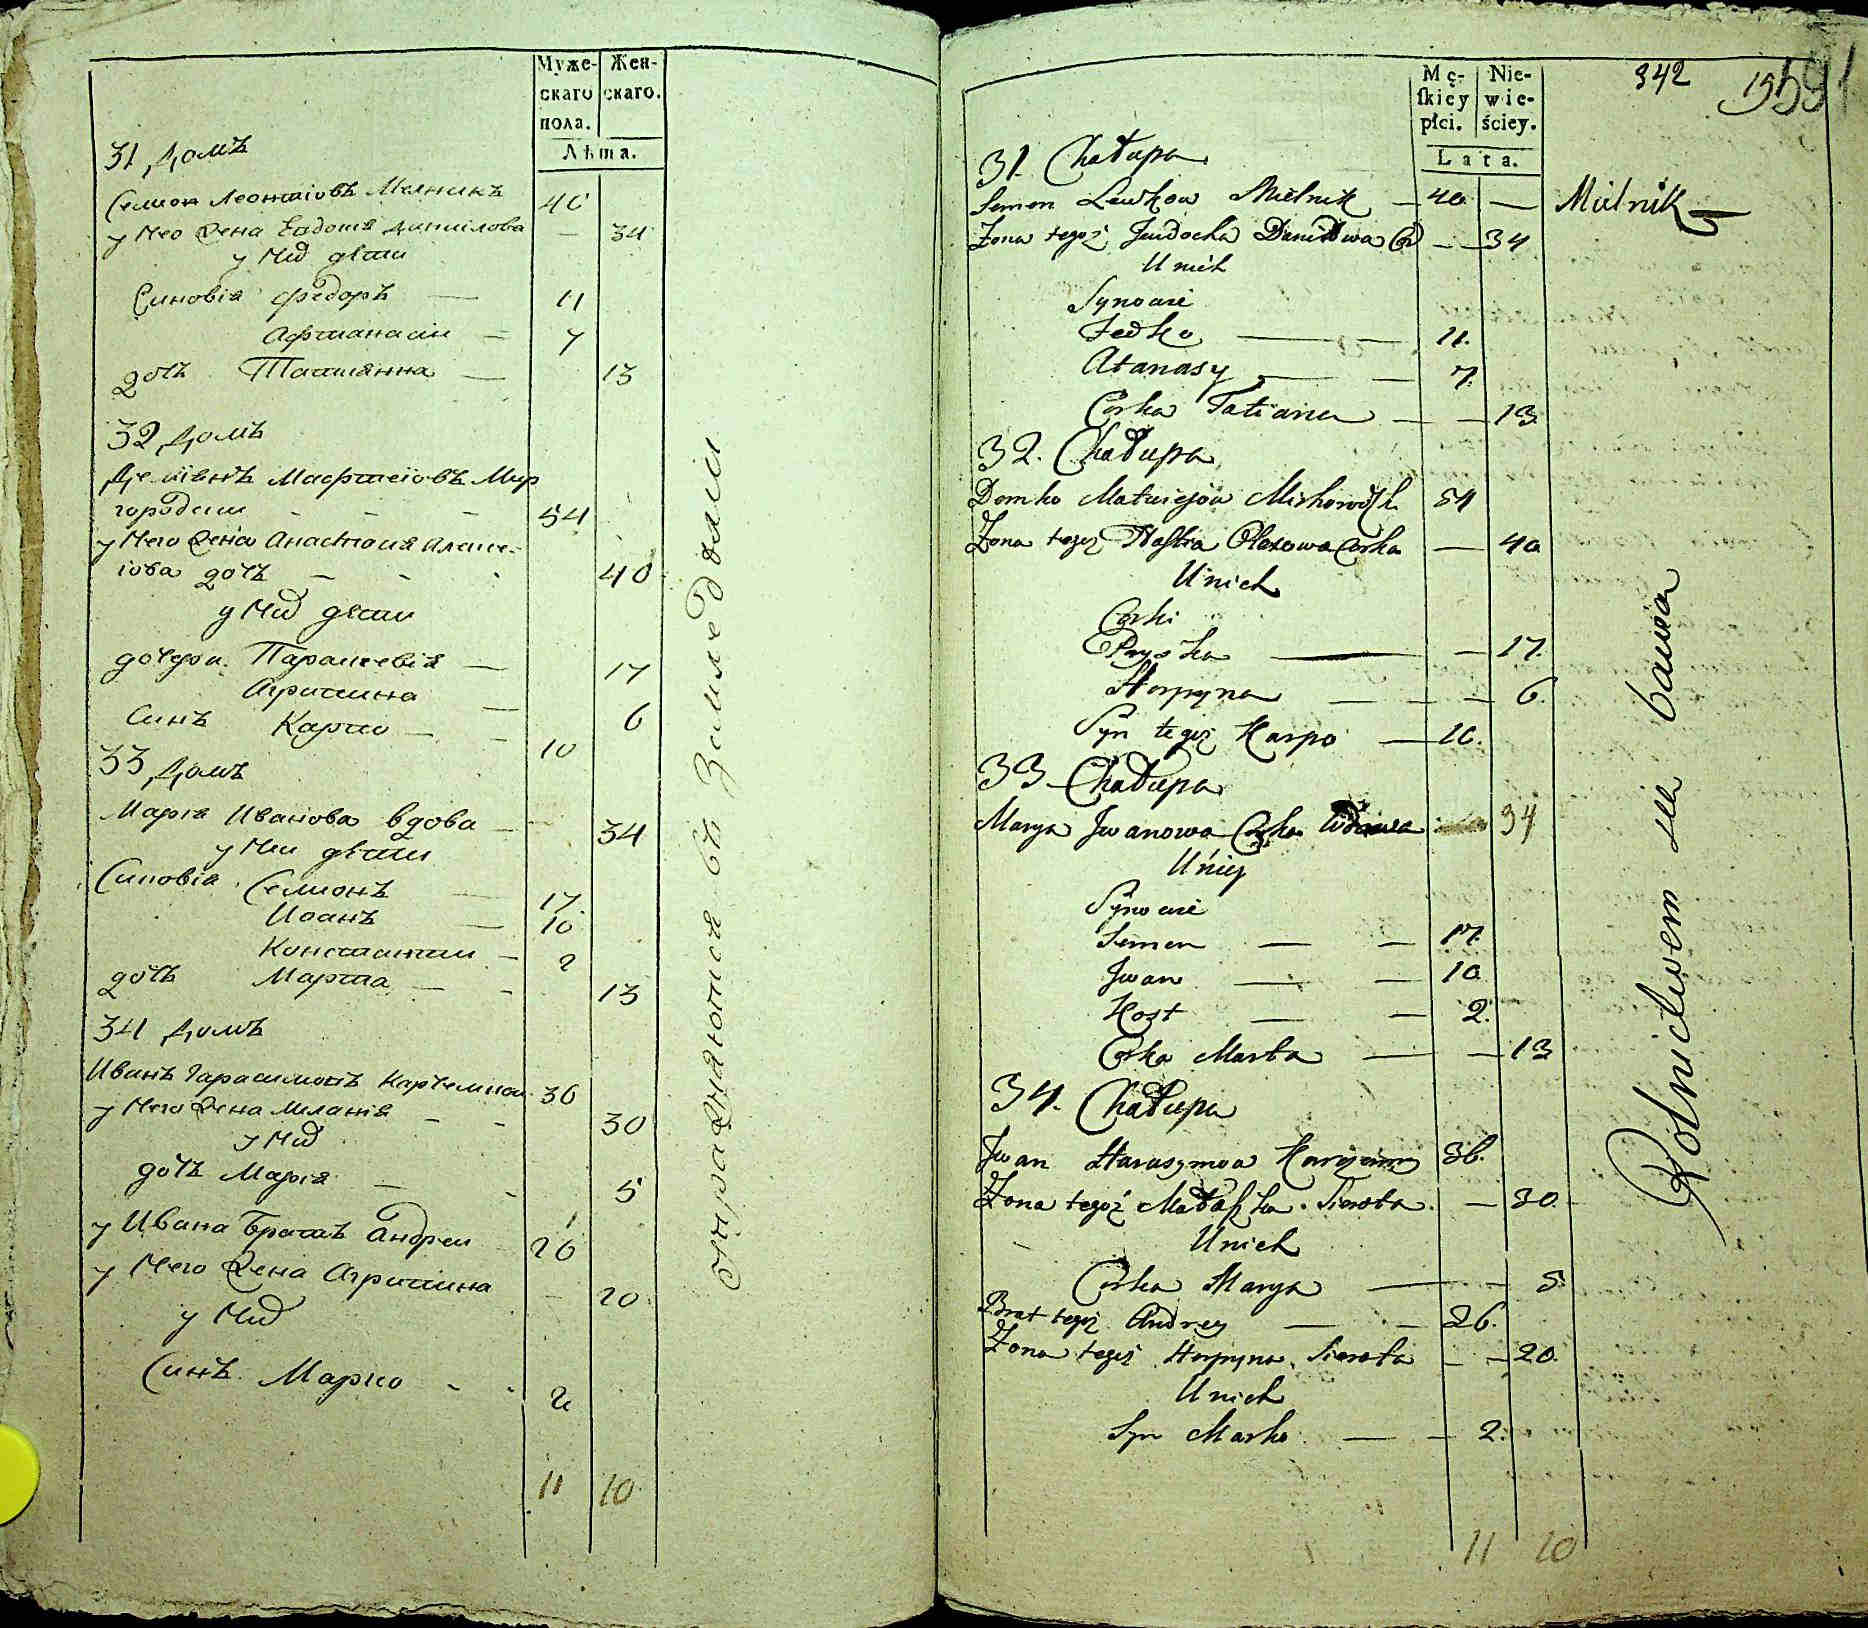 Муже-
скаго
пола.
Жен-
скаго.
Лѣта.
31 Домъ
Семион Леонтіовъ Мелникъ 40
у Нео жена Евдокія Данилова — 34
у Них дети
Синовія Федоръ — 11
Афтанасии — 7
дочъ Татіянна — 13
32 Домъ
Демянъ Матфеіовъ Мир
городски - - - 54
у Него жена Анастасия Алексе-
іова дочъ - - - 40
у Них дети
дочери Параскевія — 17
Агрипина — 6
Синъ Карпо — 10
33 Домъ
Марія Иванова вдова — 34
у Неи дети
Синовія Семионъ — 17
Иоанъ — 10
Константин — 2
дочъ Марта — - 13
34 Домъ
Иванъ Гарасимовъ 36
у Него жена Меланія - - 30
у Них
дочъ Марія — - 5
у Ивана братъ Андреи 26
у Него жена Агрипина — 20
у Них
Синъ Марко - - 2
11 10
Упражняются въ Земледелии
Mę-
skiey
płci.
Nie-
wie-
ściey.
Lata.
342
31. Chałupa
Semen Lewkow Mielnik — 40. — Mielnik
Żona tegoż Jewdocha Daniłowa — — 34
U nich
Synowie
Fedko — — 11.
Atanasy — — 7.
Corka Tatiana — — 13.
32. Chałupa
Demko Matwiejow 54
Żona tegoż Nastia Olexowa Corka — 40
U nich
Corki
Paraska — — 17.
Horpyna — — — 6.
Syn tegoż Karpo — 10.
33 Chałupa
Marya Jwanowa Corka Wdowa 34
U niey
Synowie
Semen — — 17.
Jwan — — 10
Kost — — 2.
Corka Marta — — 13
34. Chałupa
Jwan Harasymow 36.
Żona tegoż Małaszka Sierota. — 30.
U nich
Corka Marya — — 5.
Brat tegoż Andrey — — 26.
Żona tegoż Horpyna Sierota — — 20.
U nich
Syn Marko — — 2.
11 10
Rolnictwem sie bawia